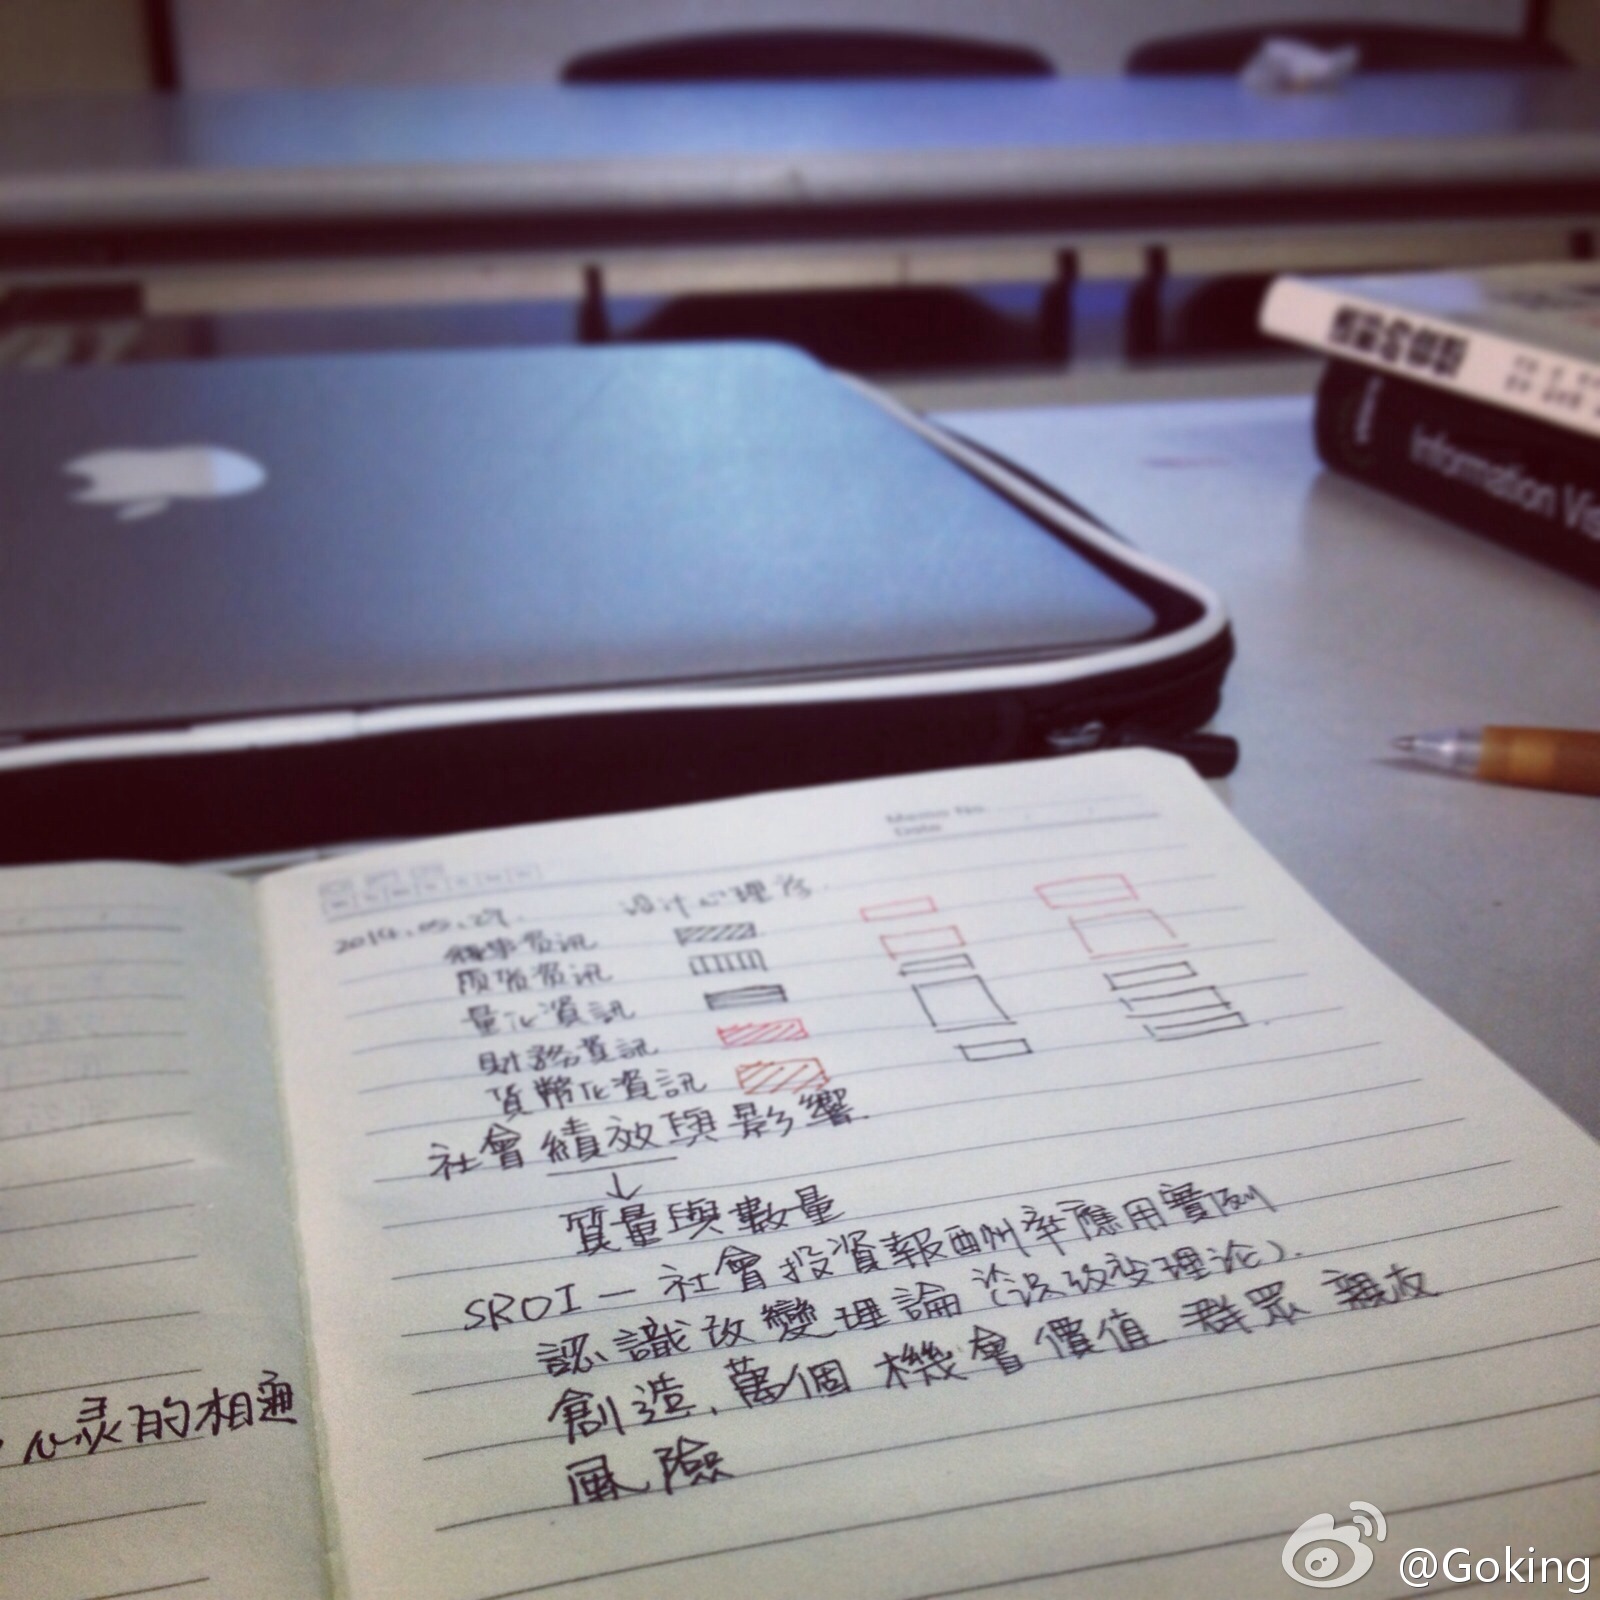 Information Vis
Memo No.
Date
2014.05.27. 设计心理学
叙事資讯
质性資讯
量化資訊
財務資訊
貨幣化資訊
社會績效與影響.
↓
質量與數量
SROI — 社會投資報酬率應用實例
認識改變理論(认识改变理论).
創造、萬個 機會 價值 群眾 親友
風險
心灵的相通
@Goking